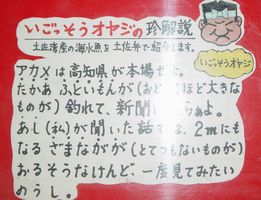 いごっそうオヤジの珍解説
土佐湾産の海水魚を土佐弁で紹介します。
いごっそうオヤジ
アカメは高知県が本場ぜよ。
たかあ ふといもんが(おどろくほど大きな
ものが)釣れて、新聞に
あし(私)が聞いた話では、2mにも
なる ざまながが(とてつもないものが)
おるそうなけんど、一度見てみたい
のうし。